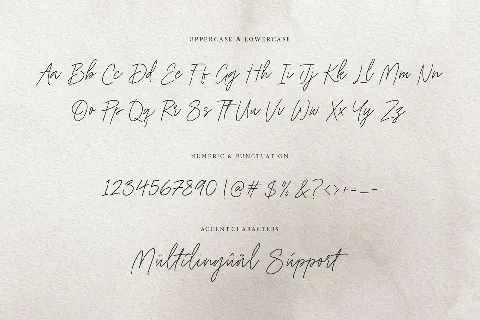 UPPERCASE & LOWERCASE
Aa Bb Cc Dd Ee Ff Gg Hh Ii Jj Kk Ll Mm Nn
Oo Pp Qq Rr Ss Tt Uu Vv Ww Xx Yy Zz
NUMERIC & PUNCTUATION
1234567890 !@# $% &?<>+-_-
ACCENT CHARACTERS
Mültilingüäl Súpport